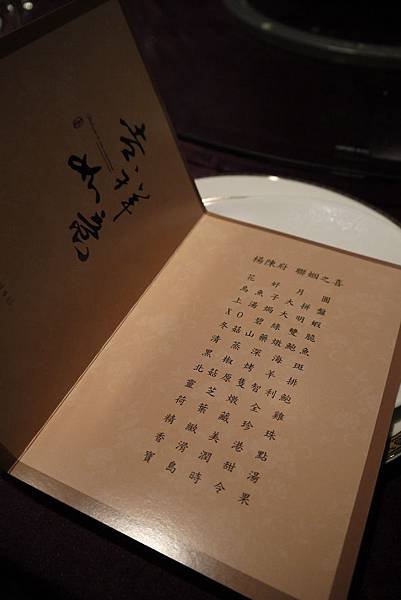 吉祥
如意
楊陳府 聯姻之喜
花好月圓
烏魚子大拼盤
上湯焗大明蝦
XO碧綠雙脆
冬菇山藥燉鮑魚
清蒸深海斑
黑椒烤羊排
北菇原隻智利鮑
靈芝燉全雞
荷葉藏珍珠
精緻美港點
香滑潤甜湯
寶島時令果